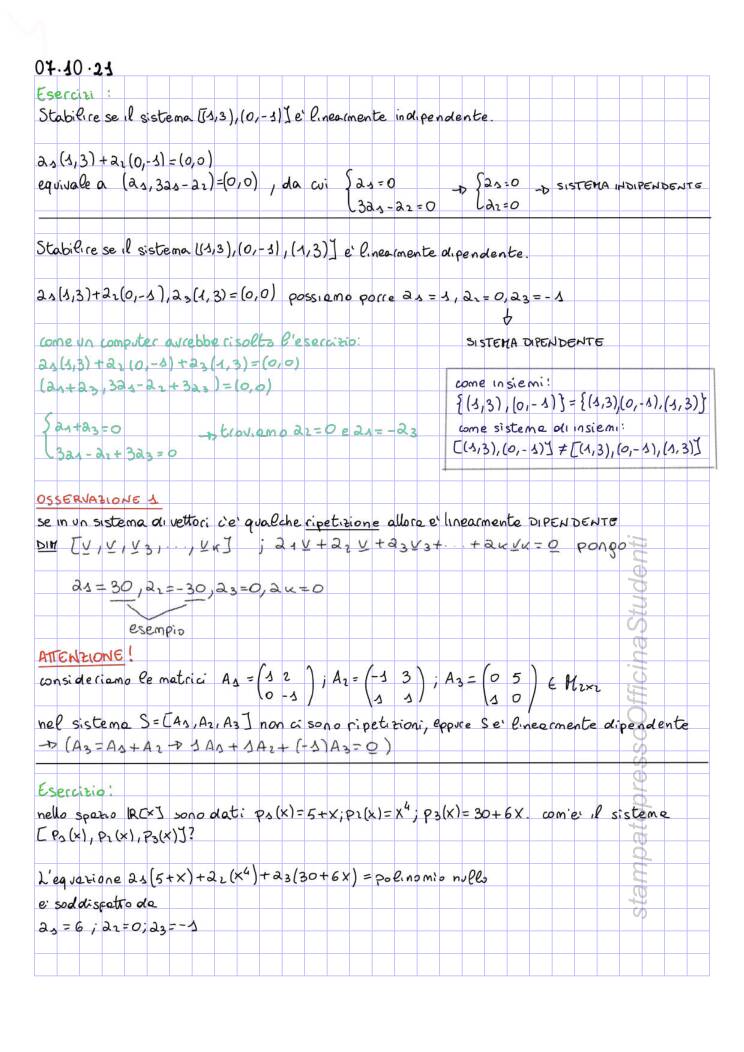 07.10.21
Esercizi :
Stabilire se il sistema [(1,3),(0,-1)] e' linearmente indipendente.
a₁(1,3)+a₂(0,-1)=(0,0)
equivale a (a₁,3a₁-a₂)=(0,0) , da cui {a₁=0 → {a₁=0 → SISTEMA INDIPENDENTE
3a₁-a₂=0 a₂=0
Stabilire se il sistema [(1,3),(0,-1),(1,3)] e' linearmente dipendente.
a₁(1,3)+a₂(0,-1),a₃(1,3)=(0,0) possiamo porre a₁=1, a₂=0, a₃=-1
↓
SISTEMA DIPENDENTE
come un computer avrebbe risolto l'esercizio:
a₁(1,3)+a₂(0,-1)+a₃(1,3)=(0,0)
(a₁+a₃,3a₁-a₂+3a₃)=(0,0)
{a₁+a₃=0 → troviamo a₂=0 e a₁=-a₃
3a₁-a₂+3a₃=0
come insiemi:
{(1,3),(0,-1)}={(1,3),(0,-1),(1,3)}
come sistema di insiemi:
[(1,3),(0,-1)]≠[(1,3),(0,-1),(1,3)]
OSSERVAZIONE 1
se in un sistema di vettori c'e' qualche ripetizione allora e' linearmente DIPENDENTE
DIM [v,v,v₃,...,vₖ] ; a₁v+a₂v+a₃v₃+...+aₖvₖ=0 pongo
a₁=30,a₂=-30,a₃=0,aₖ=0
esempio
ATTENZIONE!
consideriamo le matrici A₁=(1 2; 0 -1) ; A₂=(-1 3; 1 1) ; A₃=(0 5; 1 0) ∈ M₂ₓ₂
nel sistema S=[A₁,A₂,A₃] non ci sono ripetizioni, eppure S e' linearmente dipendente
→ (A₃=A₁+A₂ → 1A₁+1A₂+(-1)A₃=0)
Esercizio:
nello spazio ℝ[x] sono dati p₁(x)=5+x;p₂(x)=x⁴; p₃(x)=30+6x. com'e' il sistema
[p₁(x),p₂(x),p₃(x)]?
L'equazione a₁(5+x)+a₂(x⁴)+a₃(30+6x)=polinomio nullo
e' soddisfatto da
a₁=6 ; a₂=0;a₃=-1
stampatopressoOfficinaStudenti